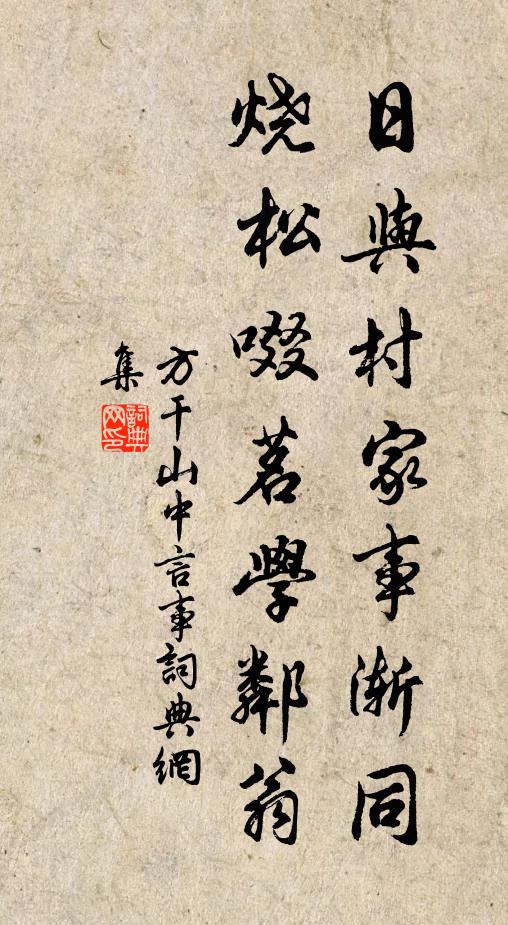 日與村家事漸同
燒松啜茗學鄰翁
方干山中言事詞典網
集
詞典網印